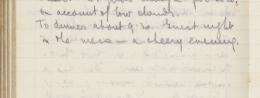 on account of low clouds.
To dinner about 9.30. Guest night
in the mess – a cheery evening.